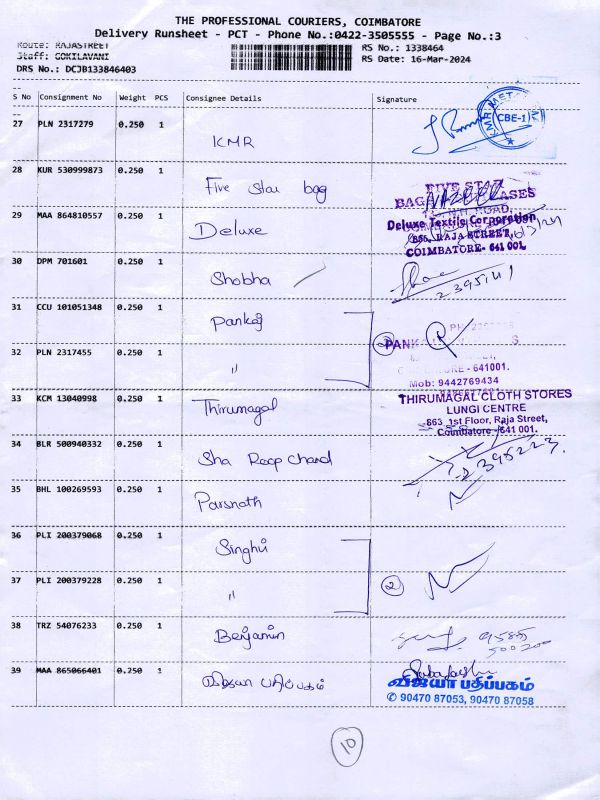 THE PROFESSIONAL COURIERS, COIMBATORE
Delivery Runsheet - PCT - Phone No.:0422-3505555 - Page No.:3
Route: RAJASTREET
Staff: GOKILAVANI
DRS No.: DCJB133846403
RS No.: 1338464
RS Date: 16-Mar-2024
S No Consignment No Weight PCS Consignee Details Signature
27 PLN 2317279 0.250 1 KMR
KMR MET CBE-1
28 KUR 530999873 0.250 1 Five star bag
FIVE STAR
29 MAA 864810557 0.250 1 Deluxe
Deluxe Textile Corporation
856, RAJA STREET,
COIMBATORE- 641 001.
30 DPM 701601 0.250 1 Shobha
2395141
31 CCU 101051348 0.250 1 Pankaj
32 PLN 2317455 0.250 1 "
2 PANK
- 641001.
Mob: 9442769434
33 KCM 13040998 0.250 1 Thirumagal
THIRUMAGAL CLOTH STORES
LUNGI CENTRE
863, 1st Floor, Raja Street,
Coimbatore - 641 001.
34 BLR 500940332 0.250 1 Sha Roop Chand
2395223
35 BHL 100269593 0.250 1 Parsnath
36 PLI 200379068 0.250 1 Singhvi
37 PLI 200379228 0.250 1 "
2
38 TRZ 54076233 0.250 1 Benjamin
9585
500200
39 MAA 865066401 0.250 1 விஜயா பதிப்பகம்
விஜயா பதிப்பகம்
✆ 90470 87053, 90470 87058
10